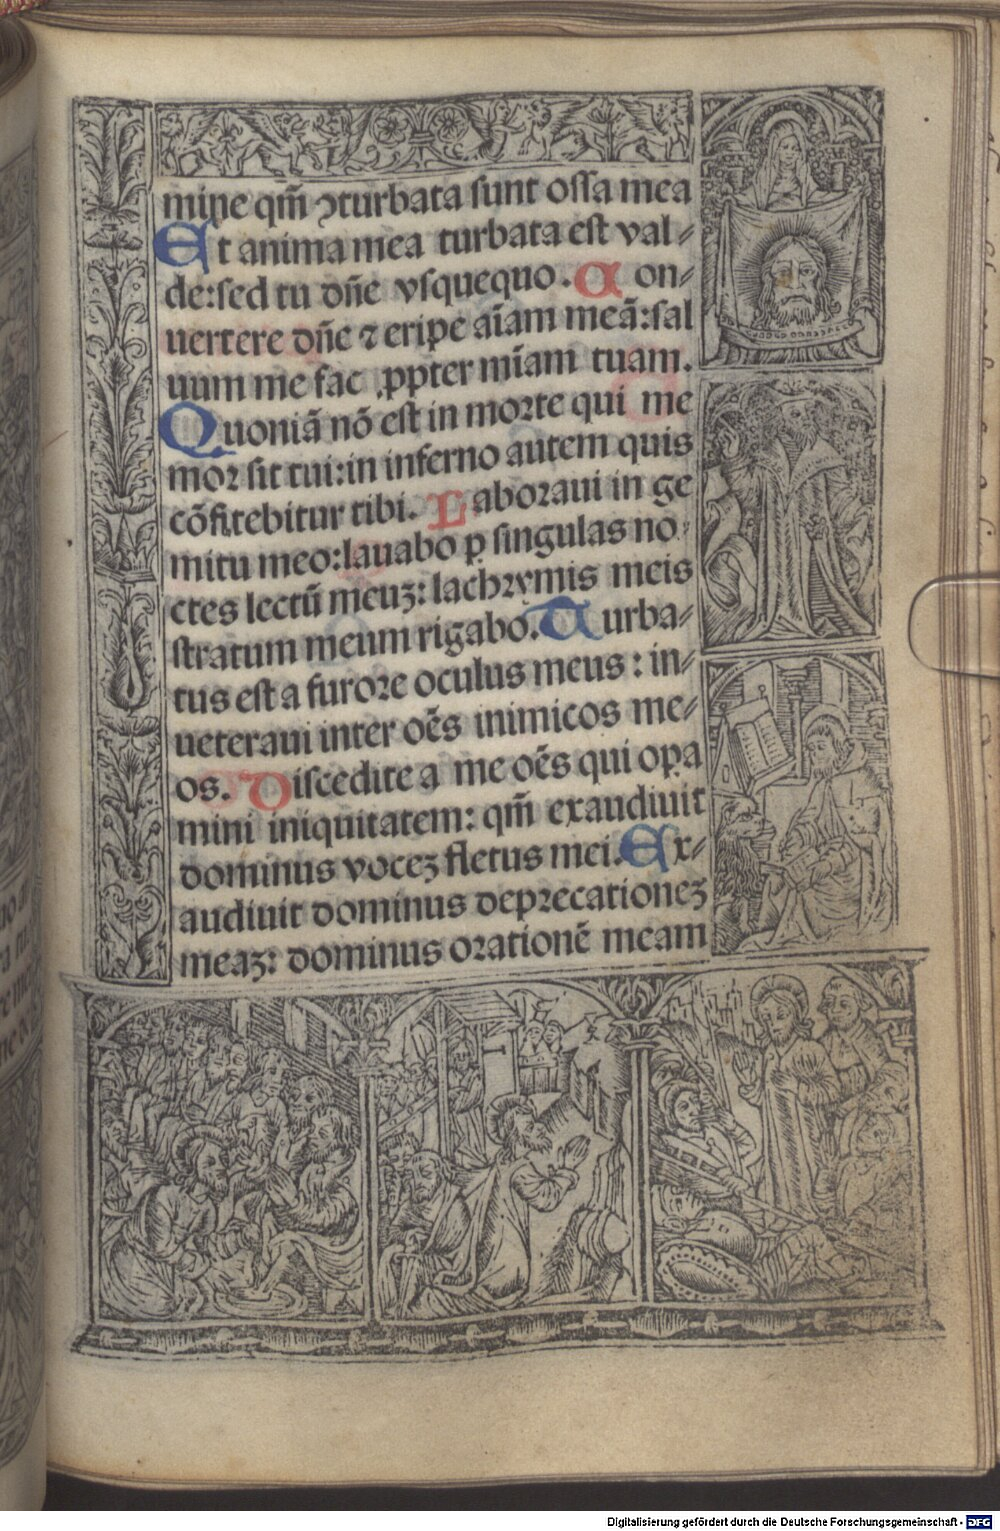 mine qm̄ ꝯturbata sunt ossa mea
Et anima mea turbata est val⸗
de:sed tu dn̄e vsquequo. Con⸗
uertere dn̄e ⁊ eripe aīam meā:sal
uum me fac ꝓpter mīam tuam.
Quoniā nō est in morte qui me
mor sit tui:in inferno autem quis
cōfitebitur tibi. Laboraui in ge
mitu meo:lauabo ꝑ singulas no
ctes lectū meuꝫ: lachrymis meis
stratum meum rigabo. Turba⸗
tus est a furore oculus meus: in⸗
ueteraui inter oēs inimicos me⸗
os. Discedite a me oēs qui opa
mini iniquitatem: qm̄ exaudiuit
dominus voceꝫ fletus mei. Ex⸗
audiuit dominus deprecationeꝫ
meaꝫ: dominus orationē meam
Digitalisierung gefördert durch die Deutsche Forschungsgemeinschaft - DFG